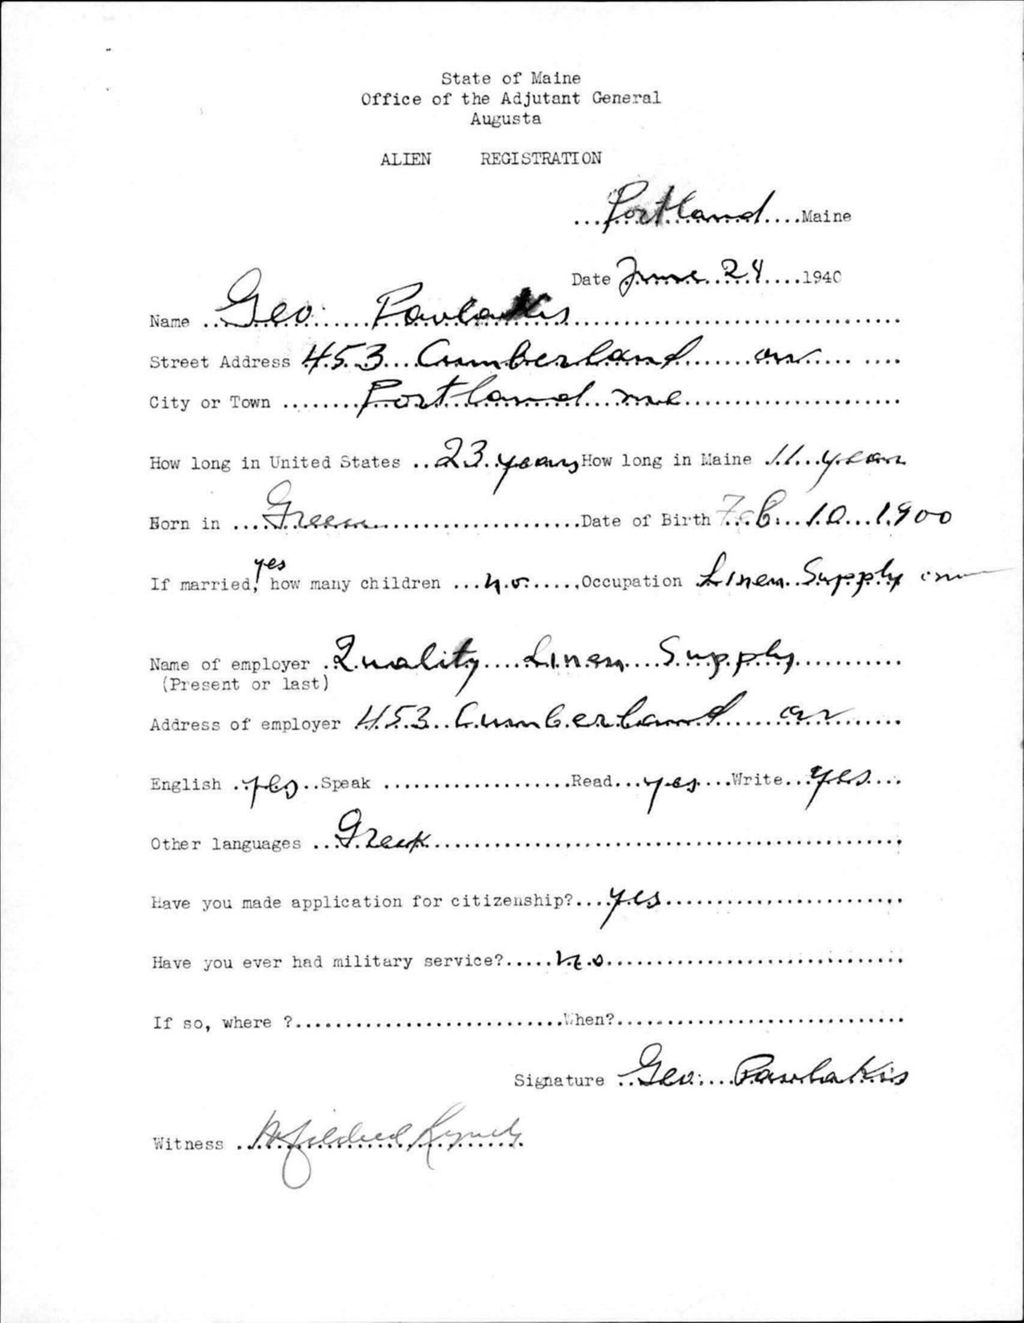 State of Maine
Office of the Adjutant General
Augusta
ALIEN REGISTRATION
Portland Maine
Date June 24 1940
Name Geo. Pavlakis
Street Address 453 Cumberland av
City or Town Portland me
How long in United States 23 years How long in Maine 11 years
Born in Greece Date of Birth Feb 10 1900
yes
If married, how many children no Occupation Linen Supply
Name of employer Quality Linen Supply
(Present or last)
Address of employer 453 Cumberland av
English yes Speak Read yes Write yes
Other languages Greek
Have you made application for citizenship? yes
Have you ever had military service? no
If so, where ? When?
Signature Geo. Pavlakis
Witness Mildred